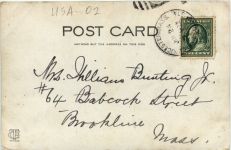 USA-02
POST CARD
ANYTHING BUT THE ADDRESS ON THIS SIDE
Mrs. Williams Bunting Jr.
#64 Babcock Street
Brookline
Mass.